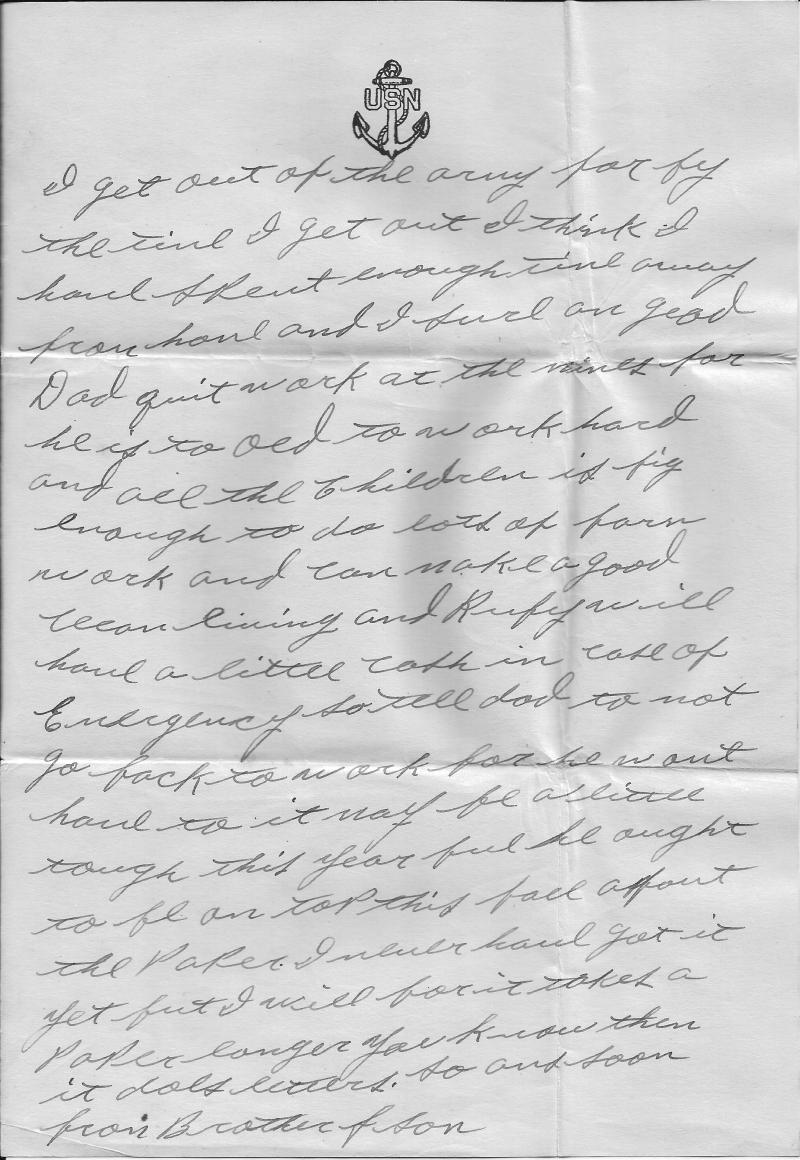 USN
I get out of the army for by
the time I get out I think I
have spent enough time away
from home and I sure am glad
Dad quit work at the mines for
he is to old to work hard
and all the Children is big
enough to do lots of farm
work and can make a good
clean living and Ruby will
have a little cash in case of
Emergency so tell dad to not
go back to work for he wont
have to it may be a little
tough this year but he ought
to be on top this fall about
the Paper. I never have got it
yet but I will for it takes a
Paper longer you know then
it does letters. so ans soon
from Brother & Son